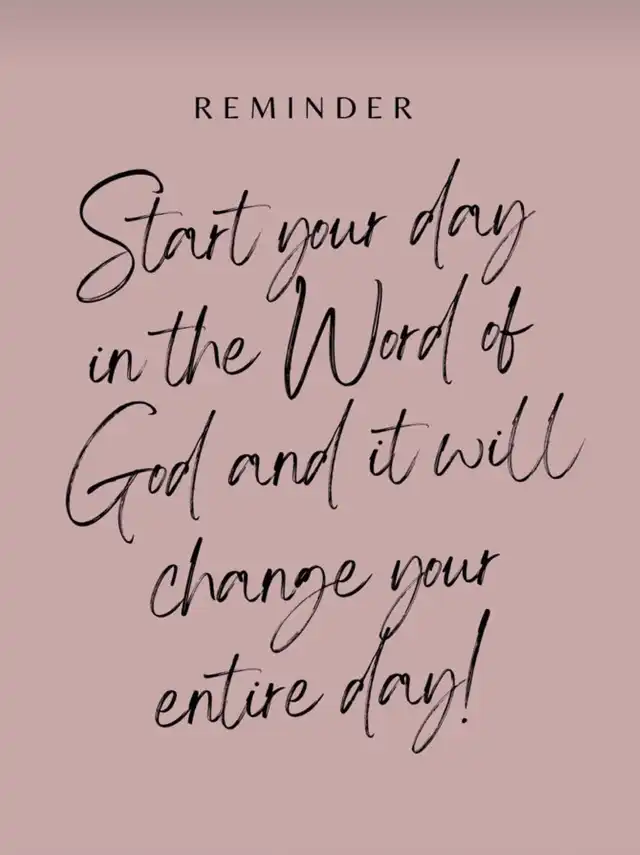 REMINDER
Start your day
in the Word of
God and it will
change your
entire day!